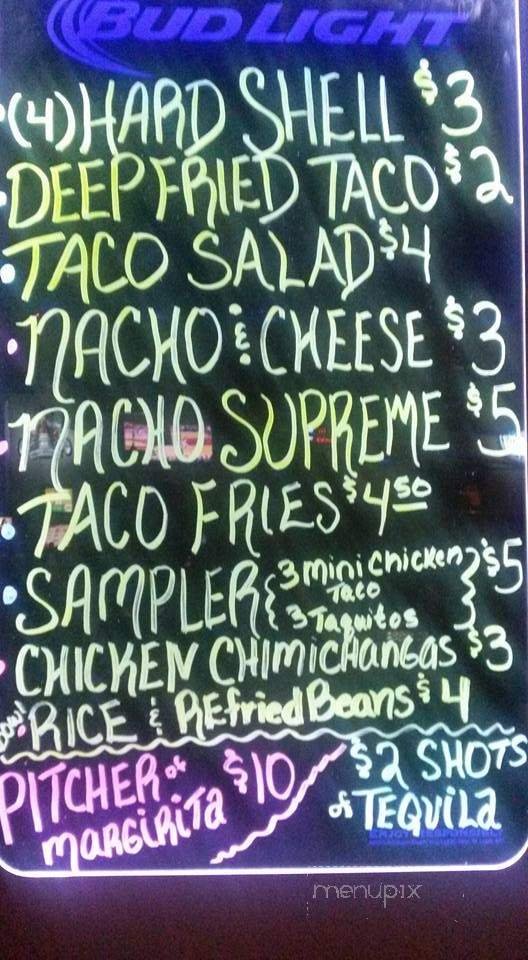 BUD LIGHT
(4) HARD SHELL $3
DEEP FRIED TACO $2
TACO SALAD $4
NACHO & CHEESE $3
NACHO SUPREME $5
TACO FRIES $4 50
SAMPLER { 3 mini chicken Taco } $5
3 Taquitos
CHICKEN CHIMICHANGAS $3
RICE & REfried Beans $4
PITCHER of $10
MARGIRITA
$2 SHOTS
of TEQUILA
ENJOY RESPONSIBLY
menupix